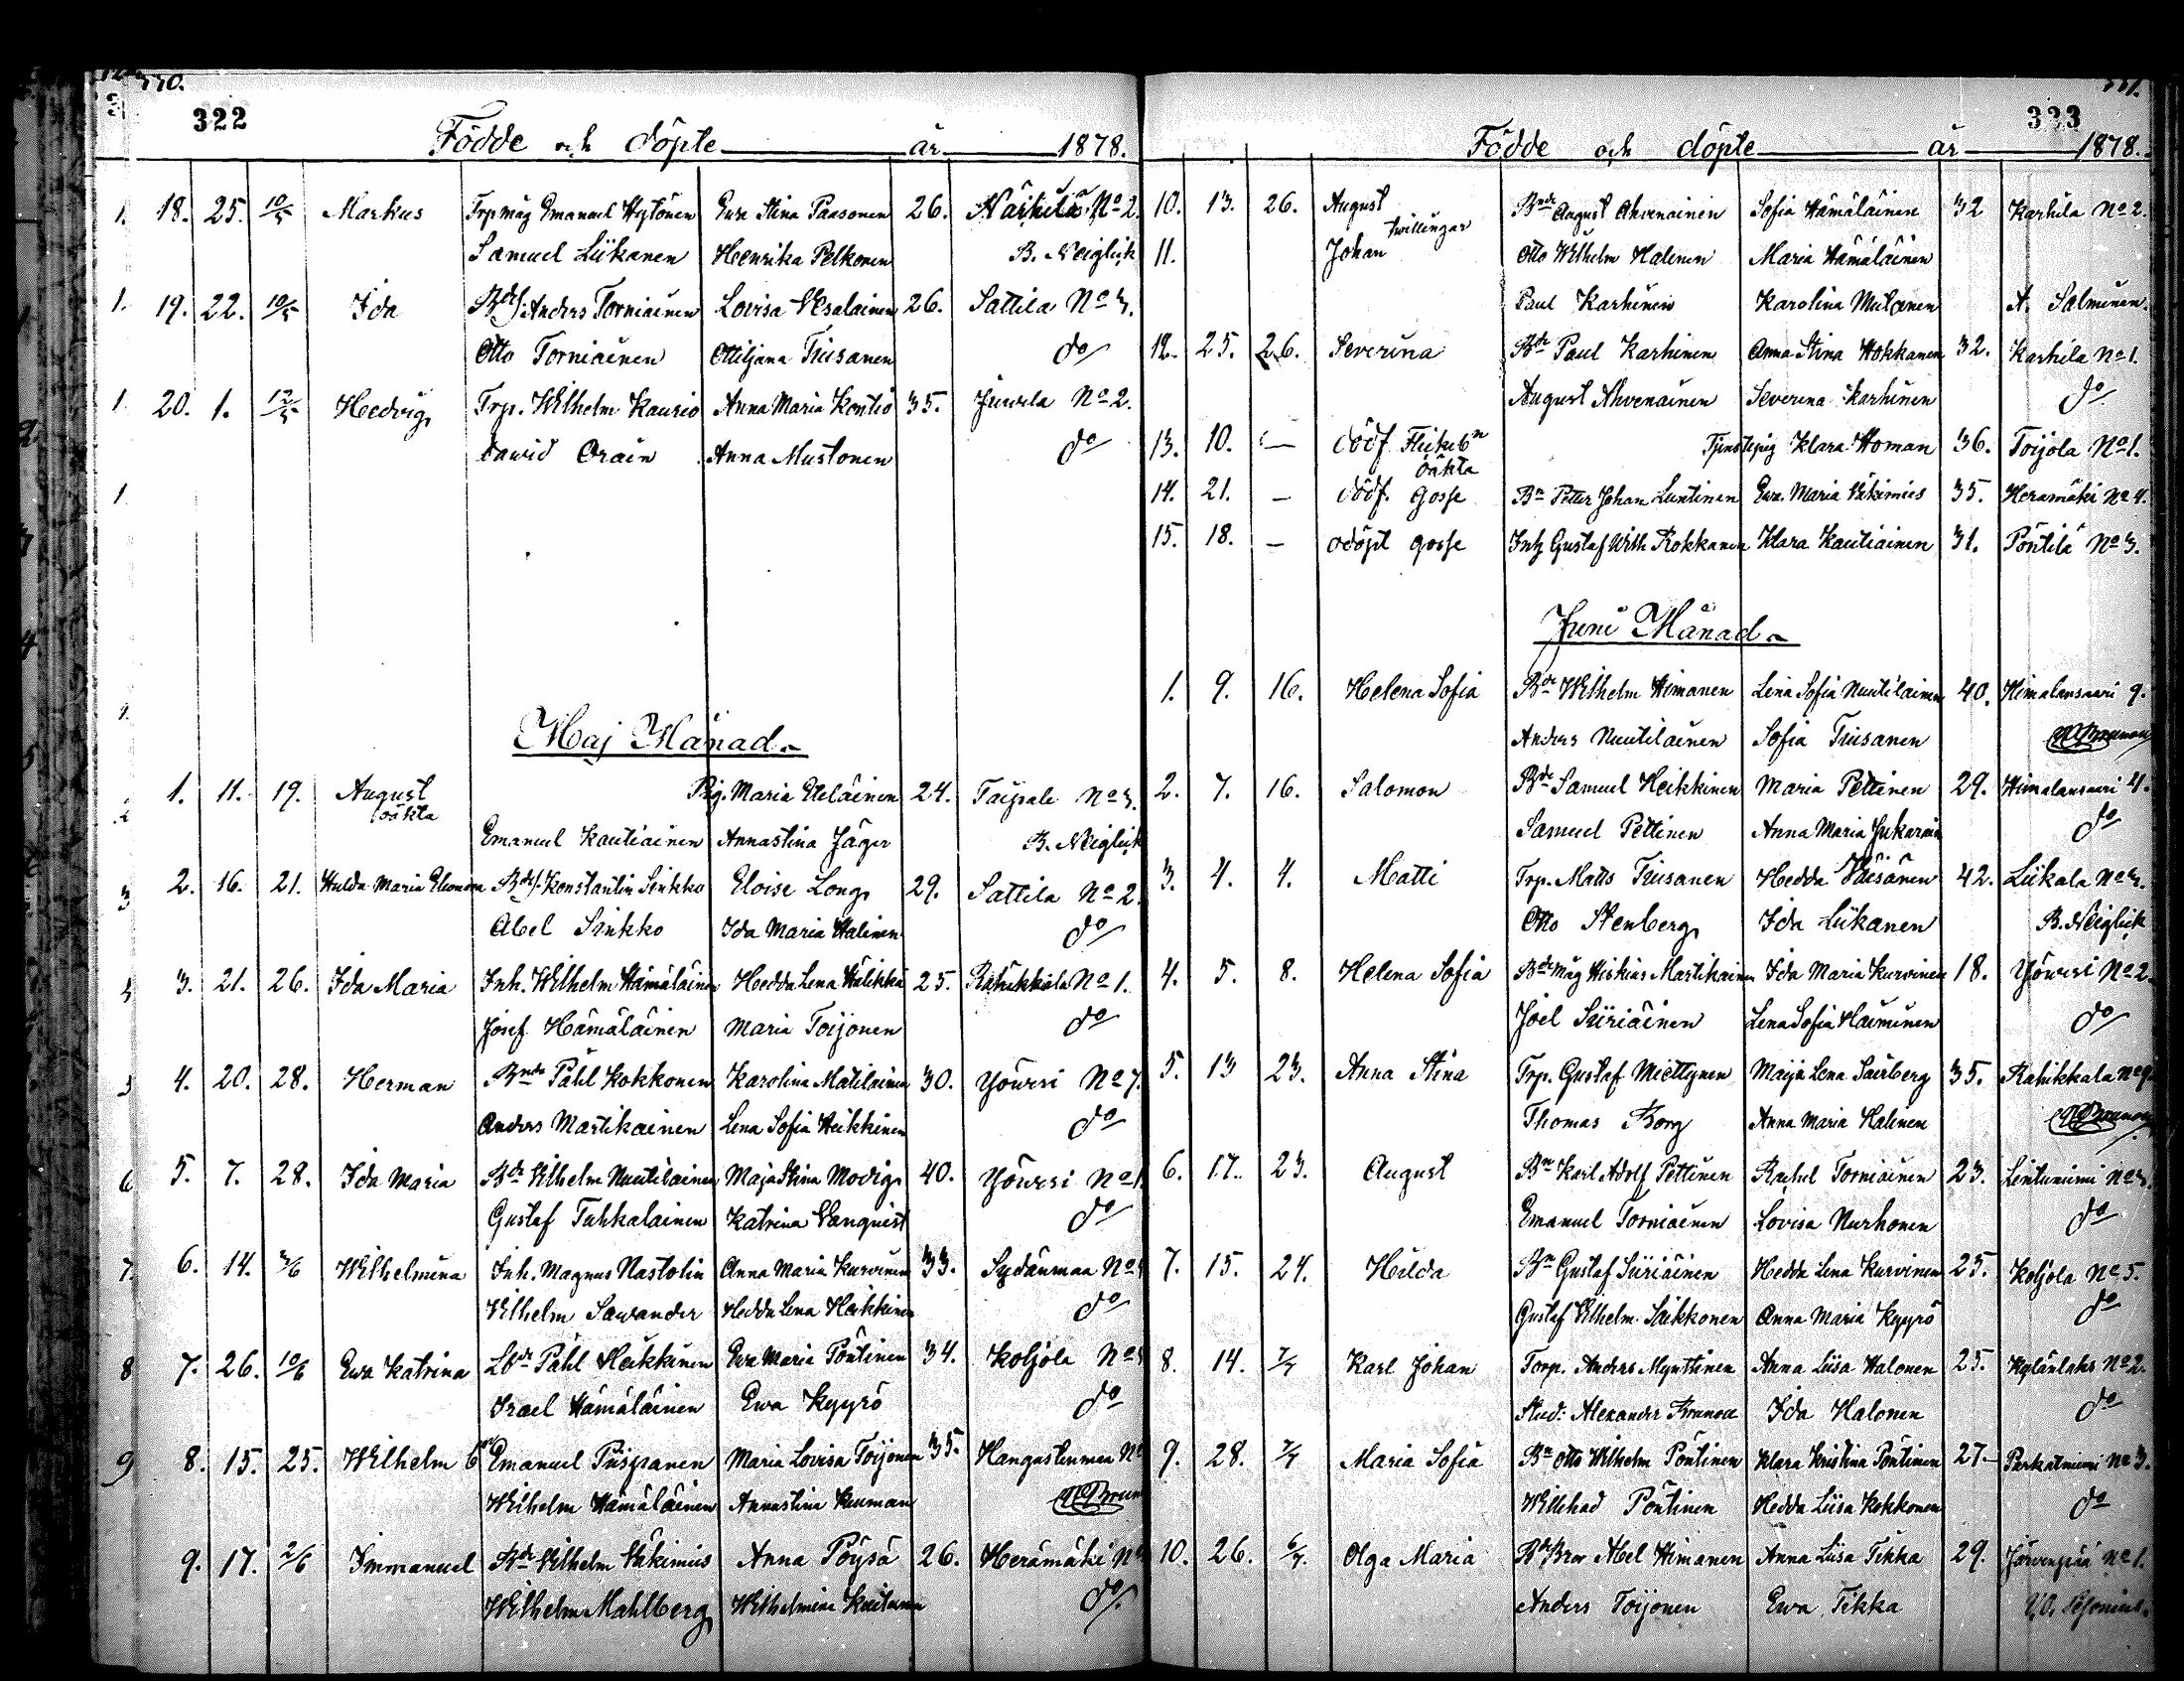 322
Födde och döpte år 1878.
18. 25. 10/5 Markus Trp måg Emanuel Hytönen Ewa Stina Paasonen 26. Närhilä No 2.
Samuel Liikanen Henrika Pelkonen B. Neiglick
19. 22. 10/5 Ida Bds. Anders Torniainen Lovisa Wesalainen 26. Sattila No 3.
Otto Torniainen Ottiljana Tiusanen do
20. 1. 12/5 Hedvig Trp. Wilhelm Kaurio Anna Maria Kontio 35. Juurla No 2.
David Orain Anna Mustonen do
Maj Månad
1. 11. 19. August oäkta Pig. Maria Eteläinen 24. Taipale No 3.
Emanuel Kautiainen Annastina Jäger B. Neiglick
2. 16. 21. Hulda Maria Eleonora Bds. Konstantin Sinkko Eloise Long 29. Sattila No 2.
Abel Sinkko Ida Maria Halinen do
3. 21. 26. Ida Maria Inh. Wilhelm Hämäläinen Hedda Lena Hälikkä 25. Rahikkala No 1.
Josef Hämäläinen Maria Toijonen do
4. 20. 28. Herman Bnde Påhl Kokkonen Karolina Matilainen 30. Yöwesi No 7.
Anders Martikainen Lena Sofia Heikkinen do
5. 7. 28. Ida Maria Bde Wilhelm Nuutilainen Maja Stina Modig 40. Yöwesi No 1.
Gustaf Tuhkalainen Katrina Wanquist do
6. 14. 3/6 Wilhelmina Inh. Magnus Nastolin Anna Maria Kurvinen 33. Sydänmaa No
Wilhelm Sawander Hedda Lena Heikkinen do
7. 26. 10/6 Ewa Katrina Lbde Påhl Heikkinen Ewa Maria Pöntinen 34. Koljola No
Israel Hämäläinen Ewa Kyyrö do
8. 15. 25. Wilhelm Emanuel Piispanen Maria Lovisa Toijonen 35. Hangastenmaa No
Wilhelm Hämäläinen Annastina Keuman
9. 17. 2/6 Immanuel Bde Wilhelm Häkimies Anna Pöysä 26. Herämäki No
Wilhelm Mahlberg Wilhelmina do
323
Födde och döpte år 1878.
10. 13. 26. August Bnde August Ahvenainen Sofia Hämäläinen 32 Karhila No 2.
twillingar
11. Johan Otto Wilhelm Halinen Maria Hämäläinen
Paul Karhinen Karolina Mutanen A. Salminen.
12. 25. 26. Severina Bde Paul Karhinen Anna Stina Hokkanen 32. Karhila No 1.
August Ahvenainen Severina Karhinen do
13. 10. — dödf. Flickebn oäkta Tjenstepig Klara Homan 36. Toijola No 1.
14. 21. — dödf. gosse Bn Petter Johan Luntinen Ewa Maria Häkimies 35. Heramäki No 4.
15. 18. — odöpt gosse Inh Gustaf Wilh Rokkanen Klara Kautiainen 31. Pöntilä No 3.
Juni Månad
1. 9. 16. Helena Sofia Bde Wilhelm Himanen Lena Sofia Nuutilainen 40. Himalansaari 9.
Anders Nuutilainen Sofia Tiusanen
2. 7. 16. Salomon Bde Samuel Heikkinen Maria Pettinen 29. Himalansaari 4.
Samuel Pettinen Anna Maria do
3. 4. 4. Matti Trp. Matts Tiusanen Hedda Väisänen 42. Liikala No 3.
Otto Stenberg Ida Liikanen B. Neiglick
4. 5. 8. Helena Sofia Bde måg Hiskias Martikainen Ida Maria Kurvinen 18. Yöwesi No 2.
Joel Siiriäinen Lena Sofia Haiminen do
5. 13 23. Anna Stina Trp. Gustaf Miettynen Maija Lena Sairberg 35. Rahikkala No 9.
Thomas Borg Anna Maria Halinen
6. 17. 23. August Bn Karl Adolf Pettinen Rachel Torniainen 23. Lintuniemi No 3.
Emanuel Torniainen Lovisa Nurhonen do
7. 15. 24. Hilda Bn Gustaf Siiriäinen Hedda Lena Kurvinen 25. Koljola No 5.
Gustaf Wilhelm Saikkonen Anna Maria Kyyrö do
8. 14. 7/7 Karl Johan Torp. Anders Mynttinen Anna Liisa Halonen 25. Kylänlaks No 2.
Stud: Alexander Brunou Ida Halonen do
9. 28. 7/7 Maria Sofia Bn Otto Wilhelm Pöntinen Klara Kristina Pöntinen 27. Parkatniemi No 3.
Willehad Pöntinen Hedda Liisa Kokkonen do
10. 26. 6/7 Olga Maria Bd Bror Abel Himanen Anna Liisa Tikka 29. Järvenpää No 1.
Anders Toijonen Ewa Tikka